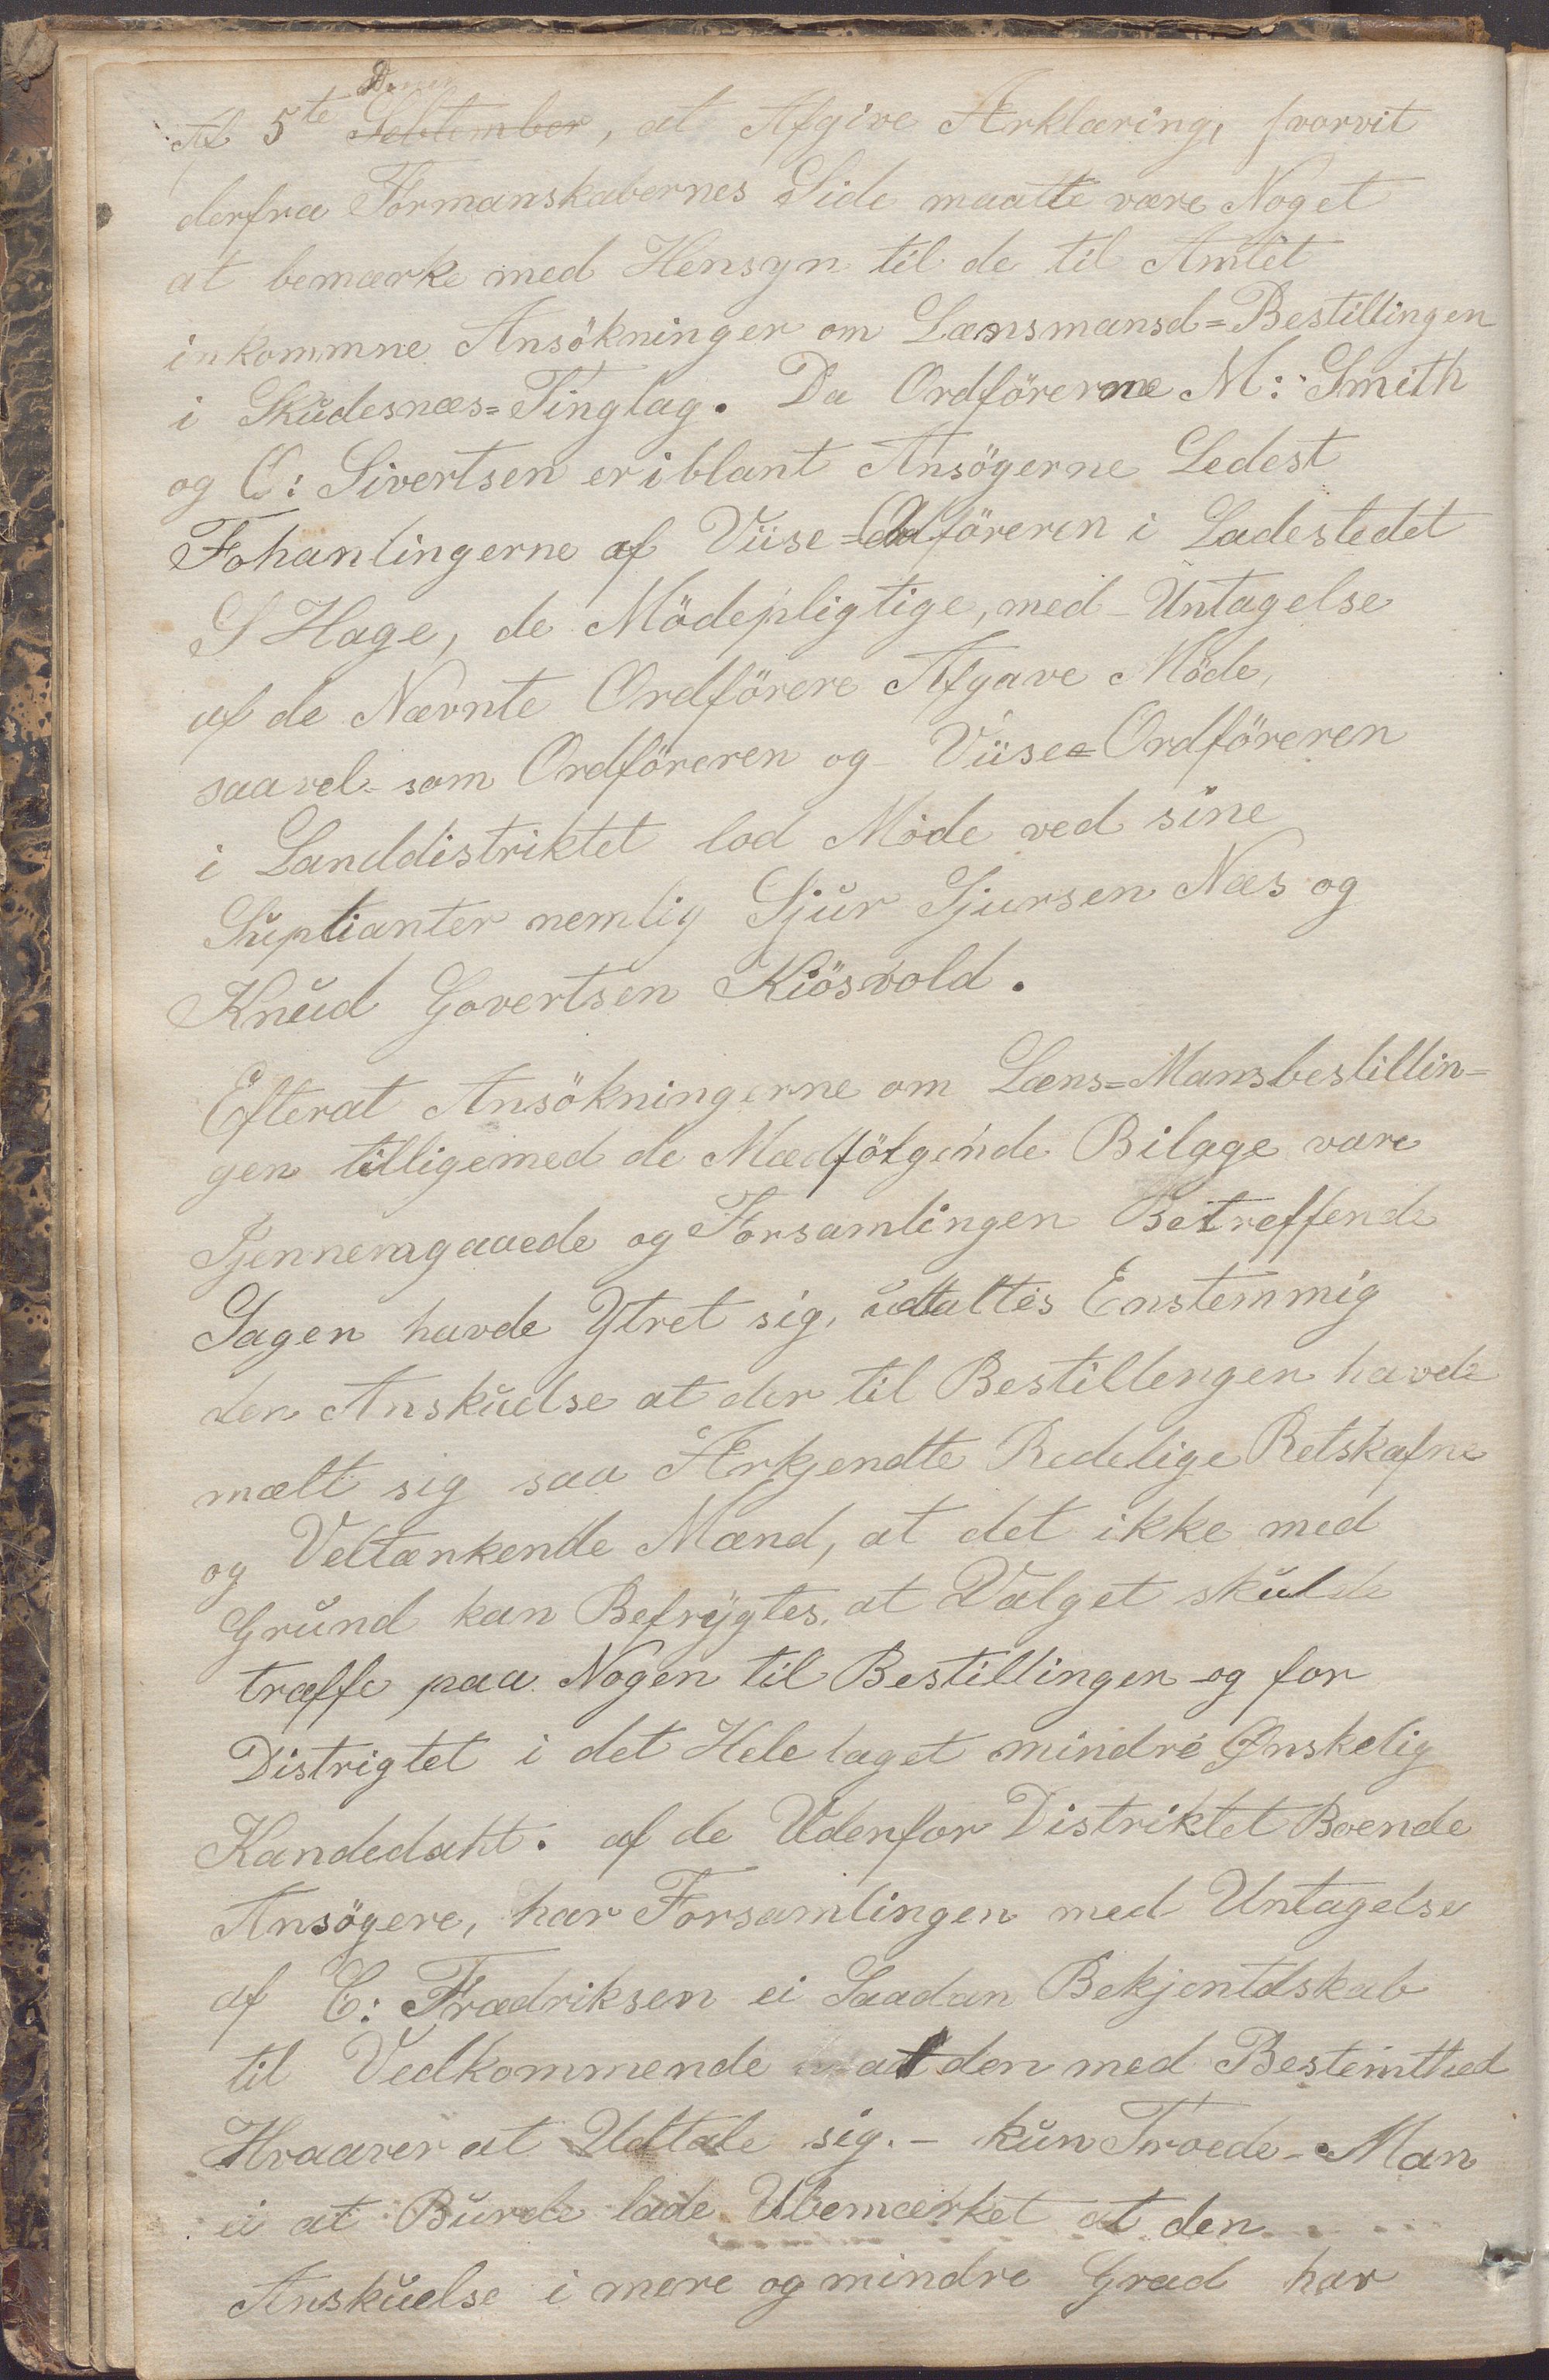 Af 5te Sebtember, at Afgive Ærklæring, hvorvit
derfra Formanskabernes Side maatte være Noget
at bemærke med Hensyn til de til Amtet
inkommne Ansökninger om Lænsmansd=Bestillingen
i Skudesnæs=Tinglag. Da Ordförerne M: Smith
og O: Sivertsen er iblant Ansögerne Ledest
Fohanlingerne af Viise=Ordföreren i Ladestedet
S Hage, de Mödepligtige, med Untagelse
af de Nævnte Ordförere Afgave Möde,
saavel som Ordföreren og Viise=Ordföreren
i Landdistriktet lod Möde ved sine
Suplianter nemlig Sjur Sjursen Næs og
Knud Govertsen Kiösvold.
Efterat Ansökningerne om Læns=Mansbestillin=
gen tilligemed de Medfölgende Bilage vare
Gjennemgaaede og Forsamlingen Betreffende
Sagen havde Ytret sig, udtaltes Enstemmig
den Anskudse at der til Bestillengen havde
mælt sig saa Ærkjendte Redelige Retskafne
og Veltænkende Mænd, at det ikke med
Grund kan Befrygtes, at Valget skulde
træffe paa Nogen til Bestillingen og for
Distrigtet i det Hele taget mindre Ønskelig
Kandedatt. af de Udenfor Distriktet Boende
Ansögere, har Forsamlingen med Untagelse
af C: Frædriksen ei Saadan Bekjentdskab
til Vedkommende at den med Bestemthed
Hvaaver at Udtale sig. - kun Troede - Man
ei at Burde lade Ubemærket at den
Anskuelse i mere og mindre Grad har